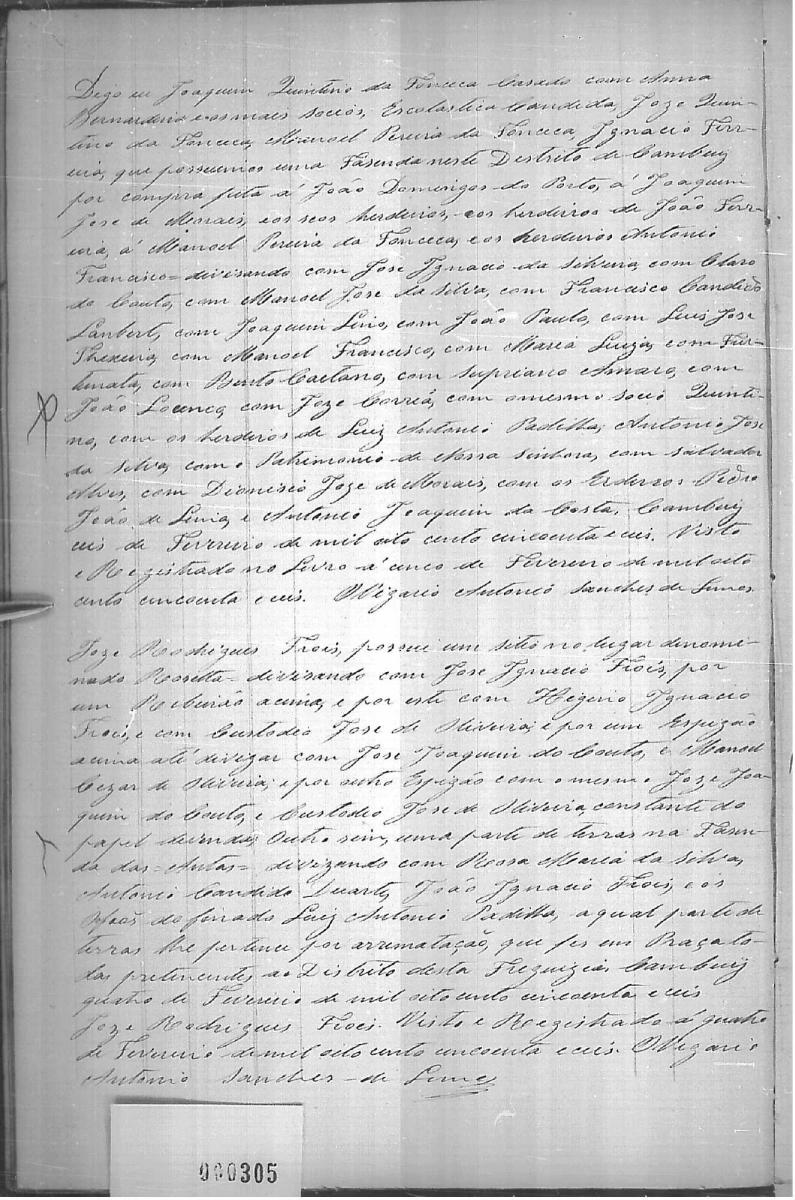 Digo eu Joaquim Quintino da Fonceca Casado com Anna
Bernardina e os mais socios, Escolastica Candida, Joze Quin-
tino da Fonceca, Manoel Pereira da Fonceca, Ignacio Ferr-
eira, que possuimos uma Fasenda neste Destrito de Cambuiy
por compra feita á João Domingos do Porto, á Joaquim
Jose de Moraes, e os seos herdeiros, e os herdeiros de João Ferr-
eira, á Manoel Pereira da Fonceca, e os herdeiros Antonio
Francisco = divisando com Jose Ignacio da Silveira, com Claro
do Couto, com Manoel Jose da Silva, com Francisco Candido
Lanbert, com Joaquim Lino, com João Paulo, com Luis Jose
Theixeira, com Manoel Francisco, com Maria Luiza, com Fur-
tunata, com Bento Caetano, com Supriano Amaro, com
João Lourenço, com Joze Corrêa, com o mesmo socio Quinti-
no, com os herdeiros de Luiz Antonio Padilha, Antonio Jose
da Silva, com o Patrimonio de Nossa Sinhora, com Salvador
Alves, com Dionisio Joze de Moraes, com os Erderos Pedro
João de Lima, e Antonio Joaquim da Costa. Cambuiy
ceis de Fevereiro de mil oito cento cincoenta e ceis. Visto
e Registrado no Livro á cinco de Fevereiro de mil oito
cento cincoenta e ceis. O Vigario Antonio Sanches de Lemos
Joze Rodrigues Frois, possue um sitio no lugar denomi-
nado Rosetta = divisando com Jose Ignacio Frois, por
um Ribeirão acima, e por este com Hegenio Ignacio
Frois, e com Custodio Jose de Oliveira; e por um Espigão
acima até divizar com Jose Joaquim do Couto, e Manoel
Cezar de Oliveira; e por outro Espigão com o mesmo Joze Joa-
quim do Couto, e Custodio Jose de Oliveira, constante do
papel de venda; Outro sim, uma parte de terras na Fasen-
da das = Antas = divizando com Rossa Maria da Silva,
Antonio Candido Duarte, João Ignacio Frois, e os
do finado Luiz Antonio Padilha, a qual parte de
terras lhe pertence por arrematação, que fes em Praça to-
das pretencentes ao Distrito desta Freguizia. Cambuiy
quatro de Fevereiro de mil oito cento cincoenta e ceis
Joze Rodrigues Frois. Visto e Registrado á quatro
de Fevereiro de mil oito cento cincoenta e ceis. O Vigario
Antonio Sanches de Leme
000305